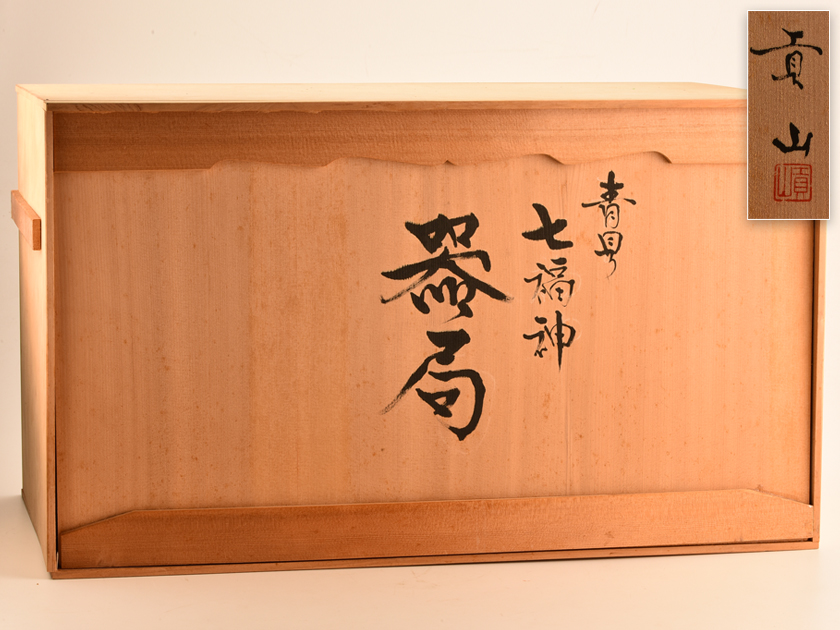 青貝
七福神
器局
貢山